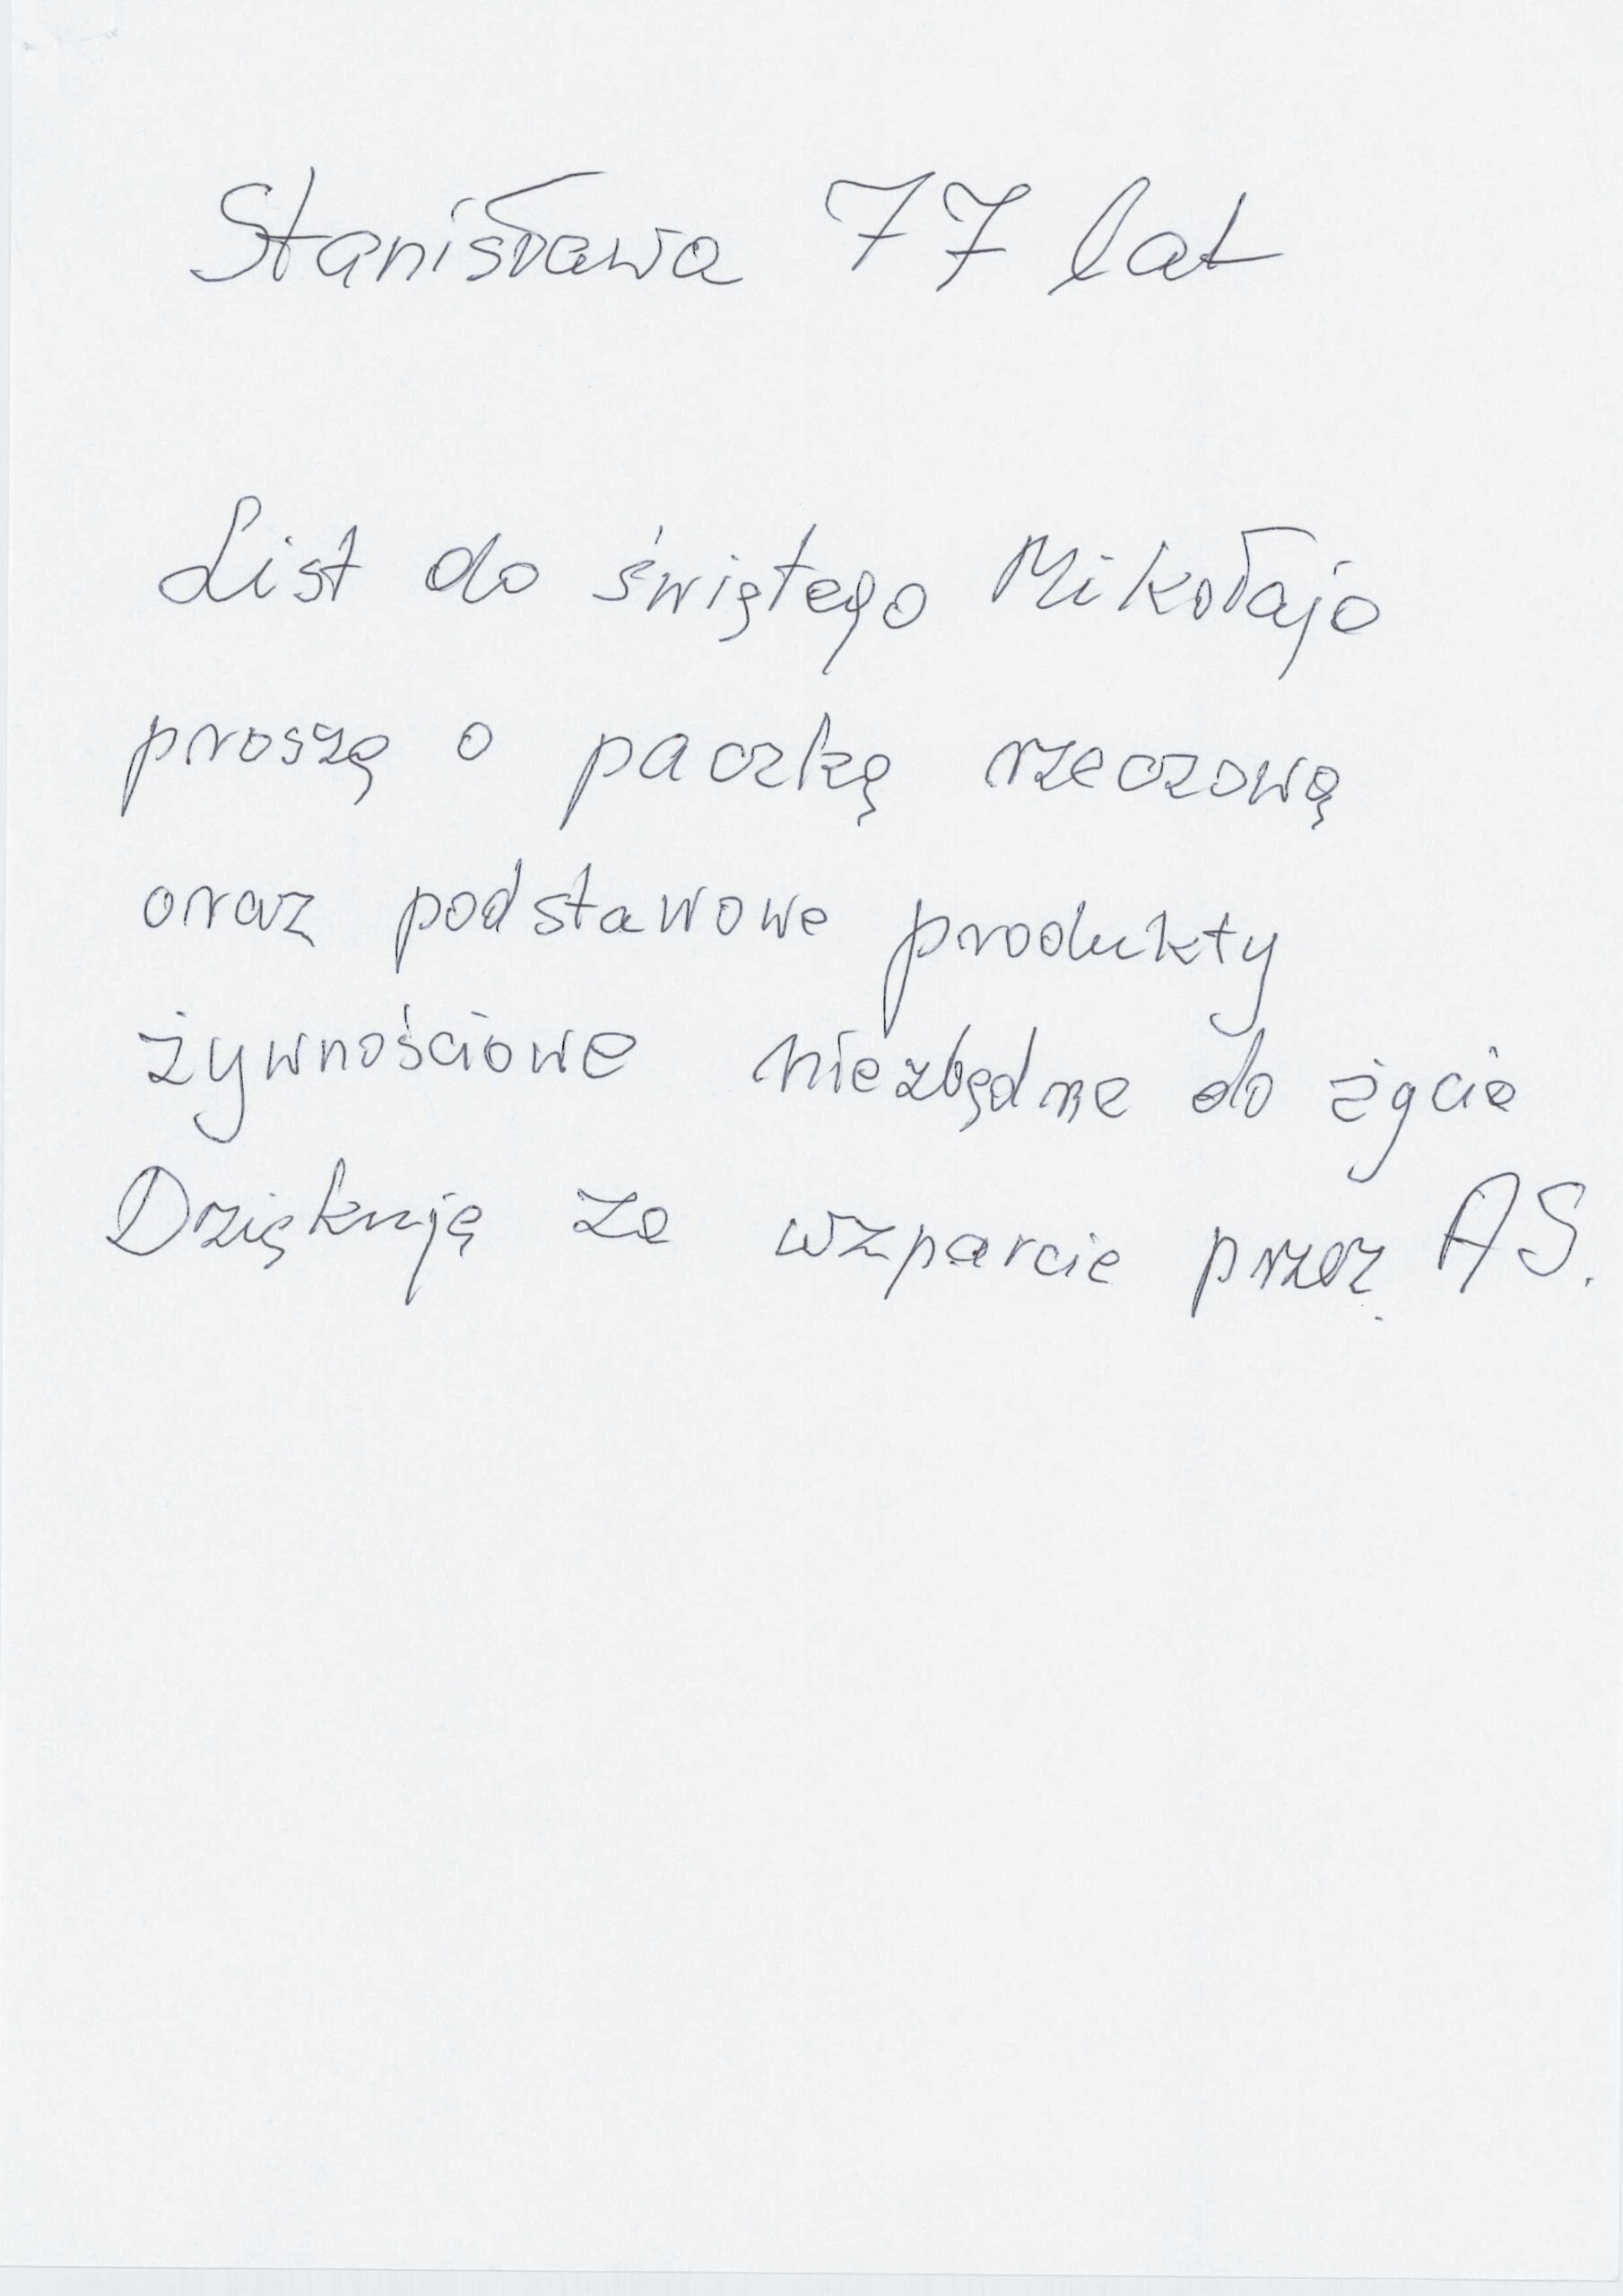 Stanisława 77 lat
List do świętego Mikołaja
proszę o paczkę rzeczową
oraz podstawowe produkty
żywnościowe niezbędne do życia
Dziękuję za wzparcie przez AS.